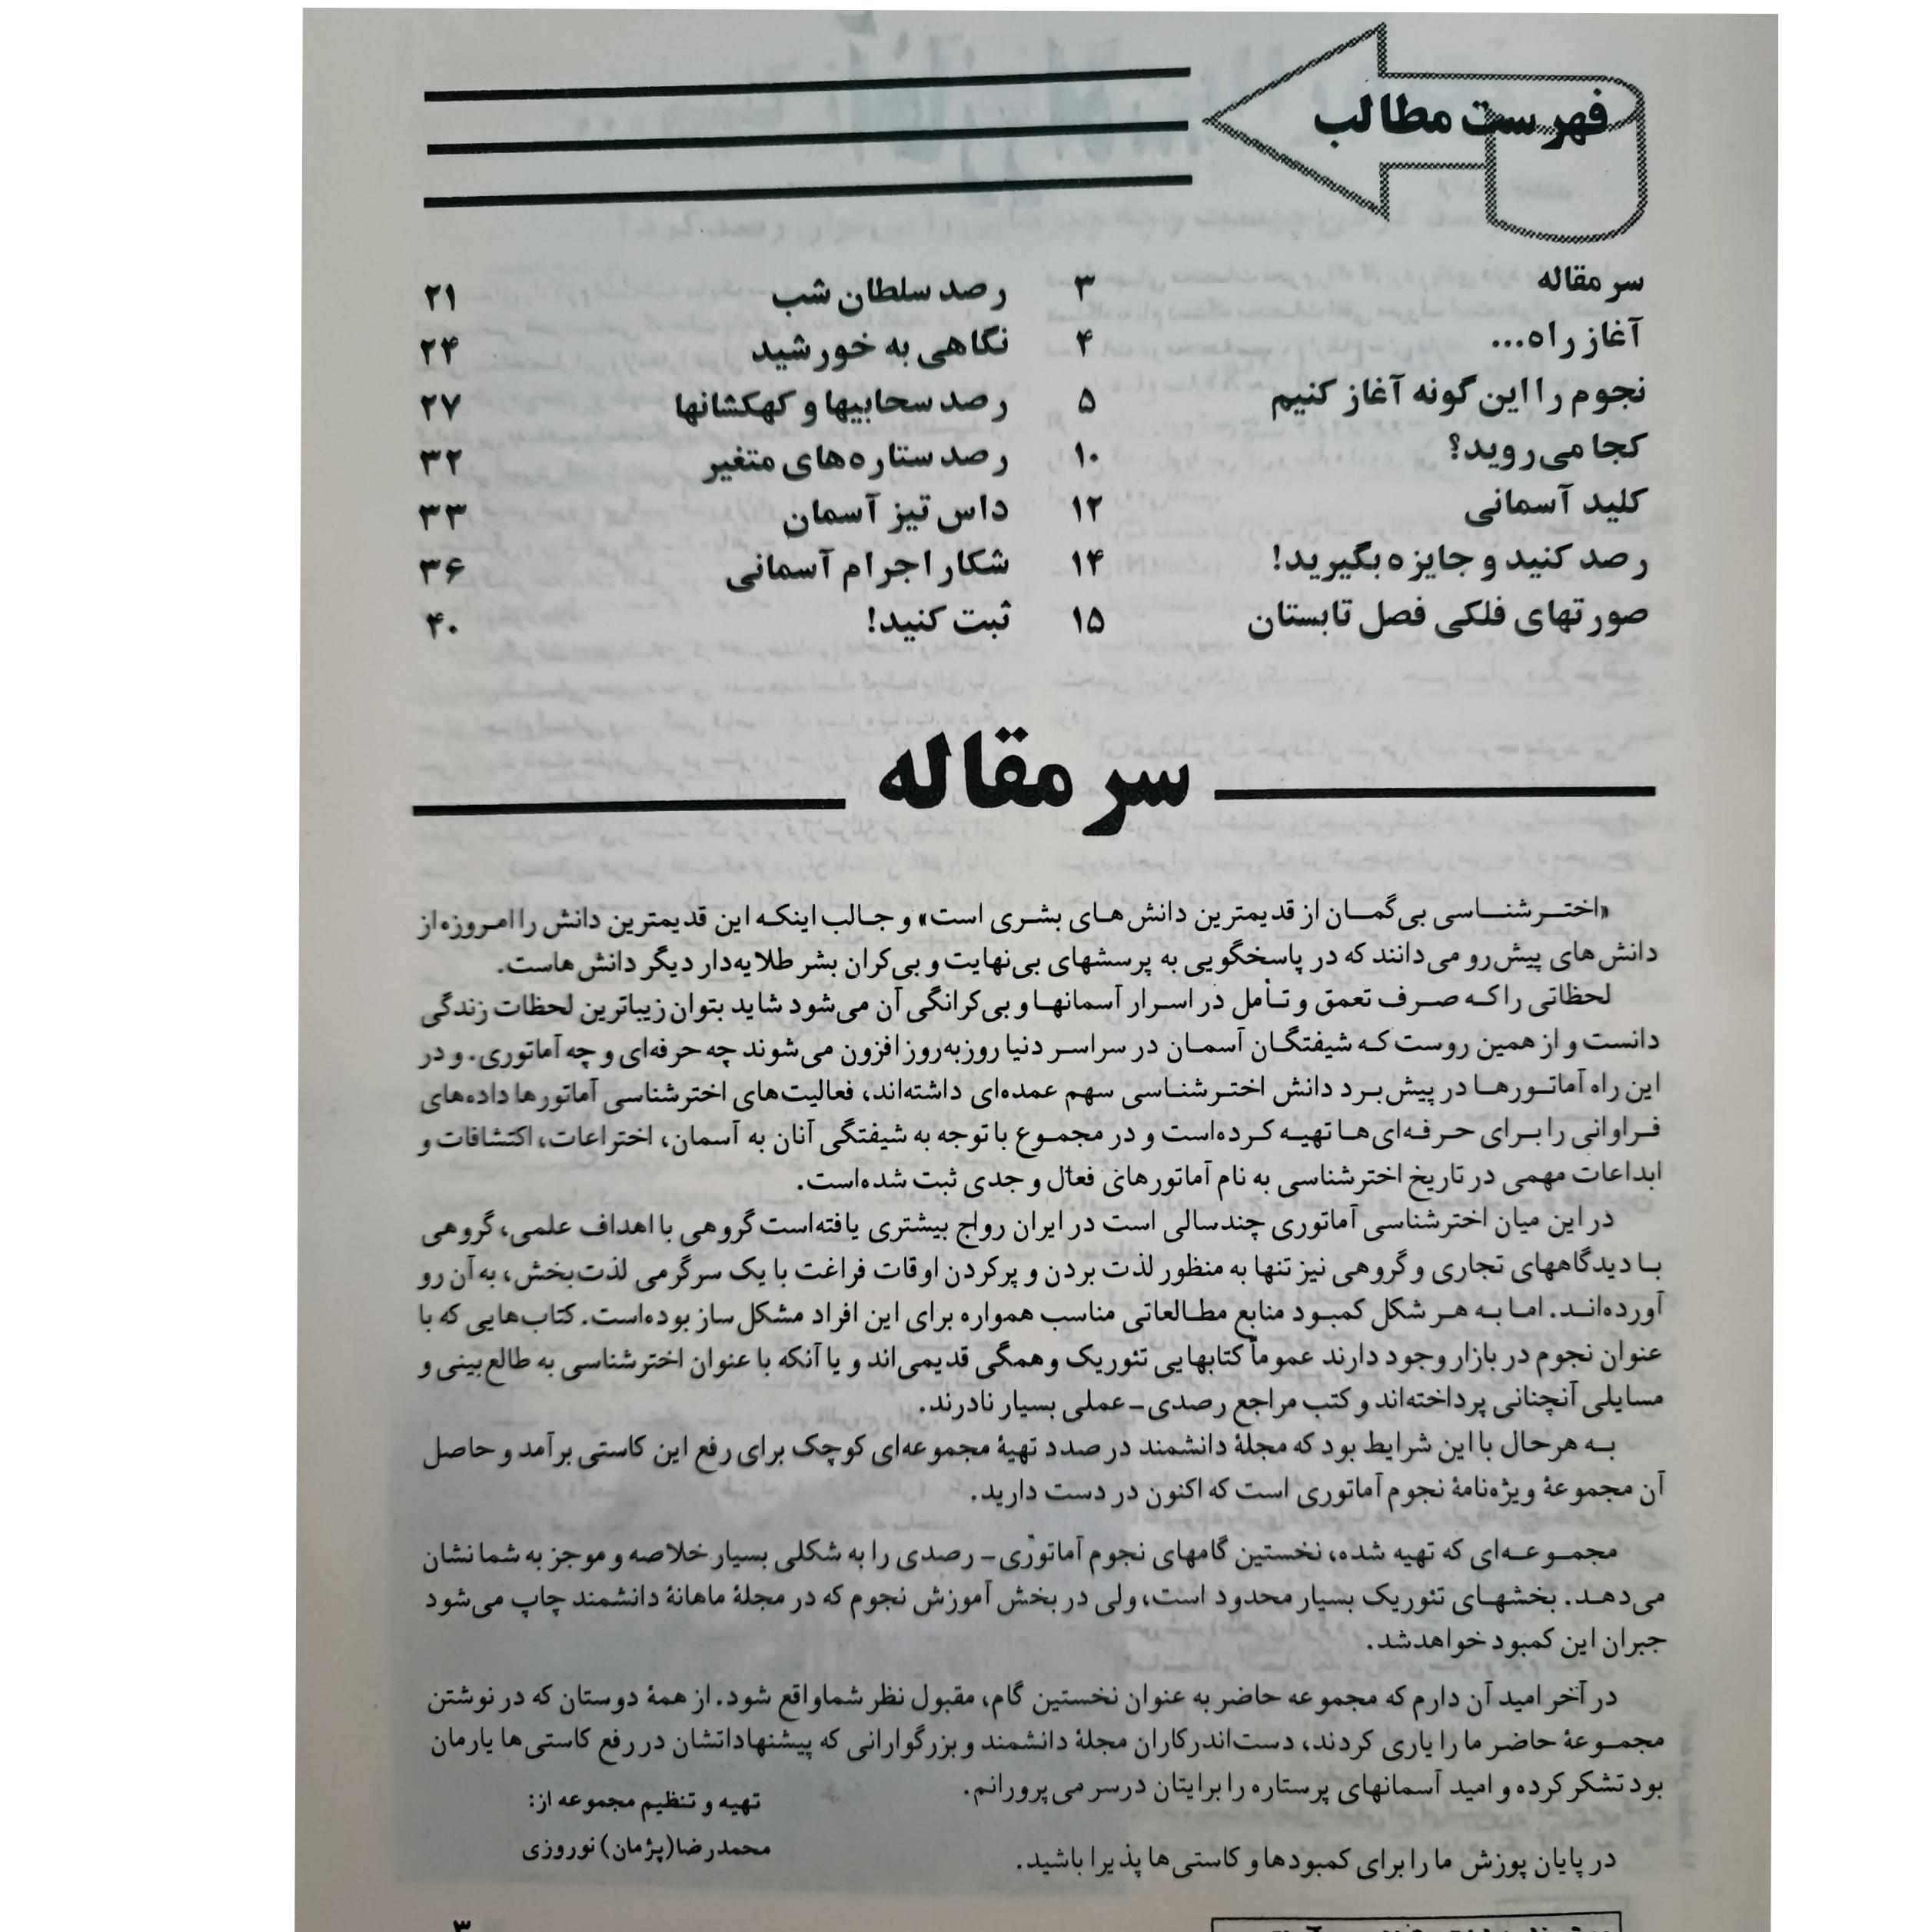 فهرست مطالب
سرمقاله ۳
آغاز راه... ۴
نجوم را این گونه آغاز کنیم ۵
کجا می‌روید؟ ۱۰
کلید آسمانی ۱۲
رصد کنید و جایزه بگیرید! ۱۴
صورتهای فلکی فصل تابستان ۱۵
رصد سلطان شب ۲۱
نگاهی به خورشید ۲۴
رصد سحابیها و کهکشانها ۲۷
رصد ستاره‌های متغیر ۳۲
داس تیز آسمان ۳۳
شکار اجرام آسمانی ۳۶
ثبت کنید! ۴۰
سرمقاله
«اخترشناسی بی‌گمان از قدیمترین دانش‌های بشری است» و جالب اینکه این قدیمترین دانش را امروزه از
دانش‌های پیش‌رو می‌دانند که در پاسخگویی به پرسشهای بی‌نهایت و بی‌کران بشر طلایه‌دار دیگر دانش‌هاست.
لحظاتی را که صرف تعمق و تأمل در اسرار آسمانها و بی‌کرانگی آن می‌شود شاید بتوان زیباترین لحظات زندگی
دانست و از همین روست که شیفتگان آسمان در سراسر دنیا روزبه‌روز افزون می‌شوند چه حرفه‌ای و چه آماتوری. و در
این راه آماتورها در پیش‌برد دانش اخترشناسی سهم عمده‌ای داشته‌اند، فعالیت‌های اخترشناسی آماتورها داده‌های
فراوانی را برای حرفه‌ای‌ها تهیه کرده‌است و در مجموع با توجه به شیفتگی آنان به آسمان، اختراعات، اکتشافات و
ابداعات مهمی در تاریخ اخترشناسی به نام آماتورهای فعال و جدی ثبت شده‌است.
در این میان اخترشناسی آماتوری چندسالی است در ایران رواج بیشتری یافته‌است گروهی با اهداف علمی، گروهی
با دیدگاههای تجاری و گروهی نیز تنها به منظور لذت بردن و پرکردن اوقات فراغت با یک سرگرمی لذت‌بخش، به آن رو
آورده‌اند. اما به هر شکل کمبود منابع مطالعاتی مناسب همواره برای این افراد مشکل ساز بوده‌است. کتاب‌هایی که با
عنوان نجوم در بازار وجود دارند عموماً کتابهایی تئوریک و همگی قدیمی‌اند و یا آنکه با عنوان اخترشناسی به طالع‌بینی و
مسایلی آنچنانی پرداخته‌اند و کتب مراجع رصدی-عملی بسیار نادرند.
به هر حال با این شرایط بود که مجلهٔ دانشمند در صدد تهیهٔ مجموعه‌ای کوچک برای رفع این کاستی برآمد و حاصل
آن مجموعهٔ ویژه‌نامهٔ نجوم آماتوری است که اکنون در دست دارید.
مجموعه‌ای که تهیه شده، نخستین گامهای نجوم آماتوری- رصدی را به شکلی بسیار خلاصه و موجز به شما نشان
می‌دهد. بخشهای تئوریک بسیار محدود است، ولی در بخش آموزش نجوم که در مجلهٔ ماهانهٔ دانشمند چاپ می‌شود
جبران این کمبود خواهدشد.
در آخر امید آن دارم که مجموعه حاضر به عنوان نخستین گام، مقبول نظر شماواقع شود. از همهٔ دوستان که در نوشتن
مجموعهٔ حاضر ما را یاری کردند، دست‌اندرکاران مجلهٔ دانشمند و بزرگوارانی که پیشنهاداتشان در رفع کاستی‌ها یارمان
بود تشکر کرده و امید آسمانهای پرستاره را برایتان درسر می‌پرورانم.
در پایان پوزش ما را برای کمبودها و کاستی‌ها پذیرا باشید.
تهیه و تنظیم مجموعه از:
محمدرضا(پژمان) نوروزی
۳